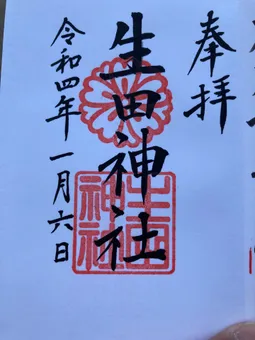 奉拝
生田神社
令和四年一月六日
生田
神社